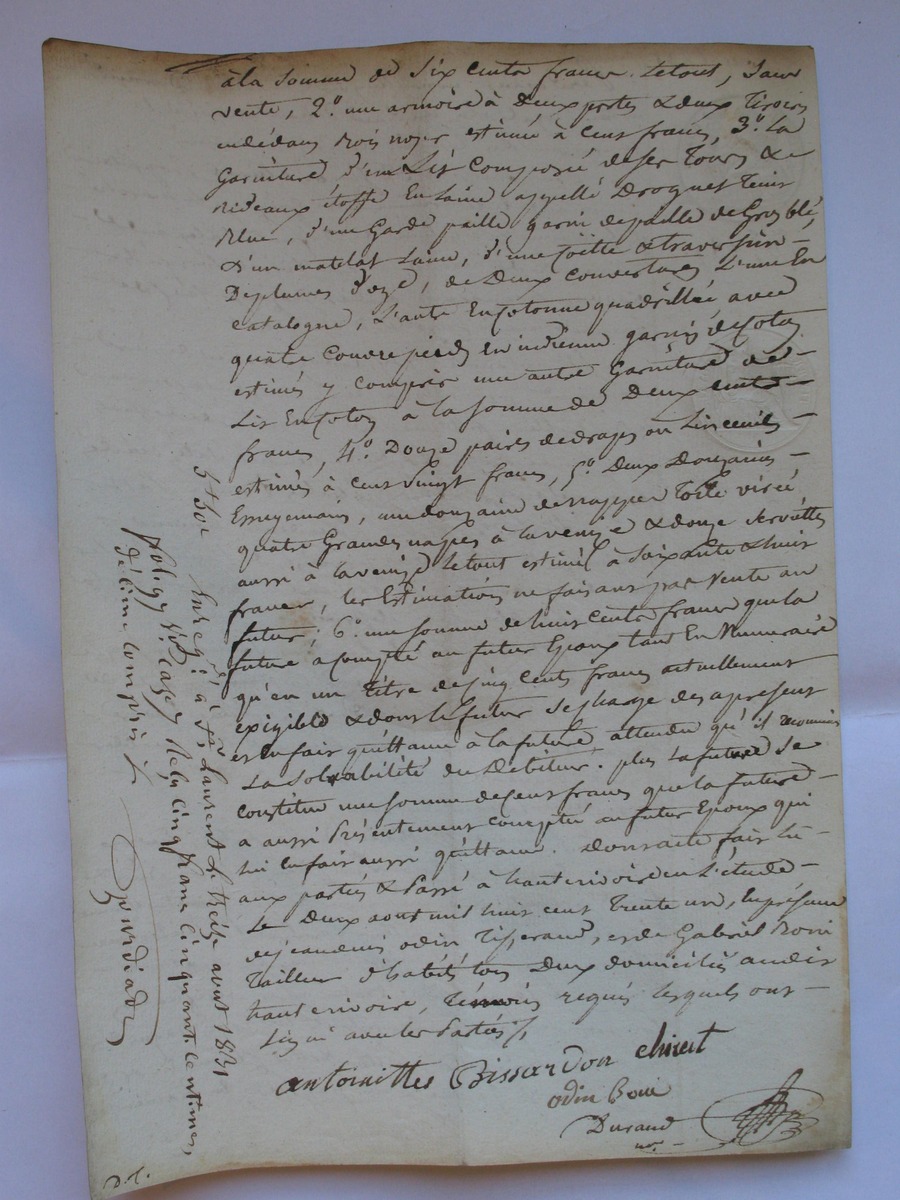 à la somme de six cents francs. le tout, sans
vente, 2°. une armoire à deux portes & deux tiroirs
en dedans Bois noyer estimée à cent francs, 3°. La
Garniture d'un Lit Composée de ses Tours &
Rideaux étoffe En Laine appellé Droguet Teint
Bleu, d'une Garde paille garni de paille de Gros blé,
d'un matelat Laine, d'une &traversin
De plumes d'oye, de Deux Couvertures L'une En
Catalogne, L'autre En Cotonne quadrillée avec
quatre Couvre pieds en indienne garnis de Coton
estimés y compris une autre Garniture de
Lit En Coton à la somme de Deux cents
francs, 4°. Douze paires de draps ou Linceuils
estimés à cent vingt francs, 5°. Deux Douzaines
Essuyemains, une douzaine de nappes Toile
quatre Grandes nappes à la venize & douze serviettes
aussi à la venize Le tout estimé à soixante & huit
francs, les Estimations ne faisant pas vente au
futur; 6°. une somme de huit cents francs que la
future a compté au futur Epoux tant En Numeraire
qu'en un titre de cinq Cents francs actuellement
exigible & dont le futur se charge des apresent
et en fait quittance à la future attendu qu'il reconnait
La solvabilité du Debiteur. plus La future se
Constitue une somme de cent francs que la future
a aussi Présentement compté au futur Epoux qui
lui en fait aussi quittance. Dont acte fait Lu
aux parties & Passé à hauterivoire en L'étude
Le Deux aout mil huit cent Trente un, En présence
de jean denis odin Tisserand, et de Gabriel Boni
Tailleur d'habits tous Deux domiciliés audit
hauterivoire, témoins requis lesquels ont
signé avec les Parties /
antoinettes Bissardon
odin Boni
Durand
nre.
Enregé. à St. Laurent le treize aout 1831
folio Ro. cases Reçu cinq francs cinquante centimes,
décime compris
D.T.